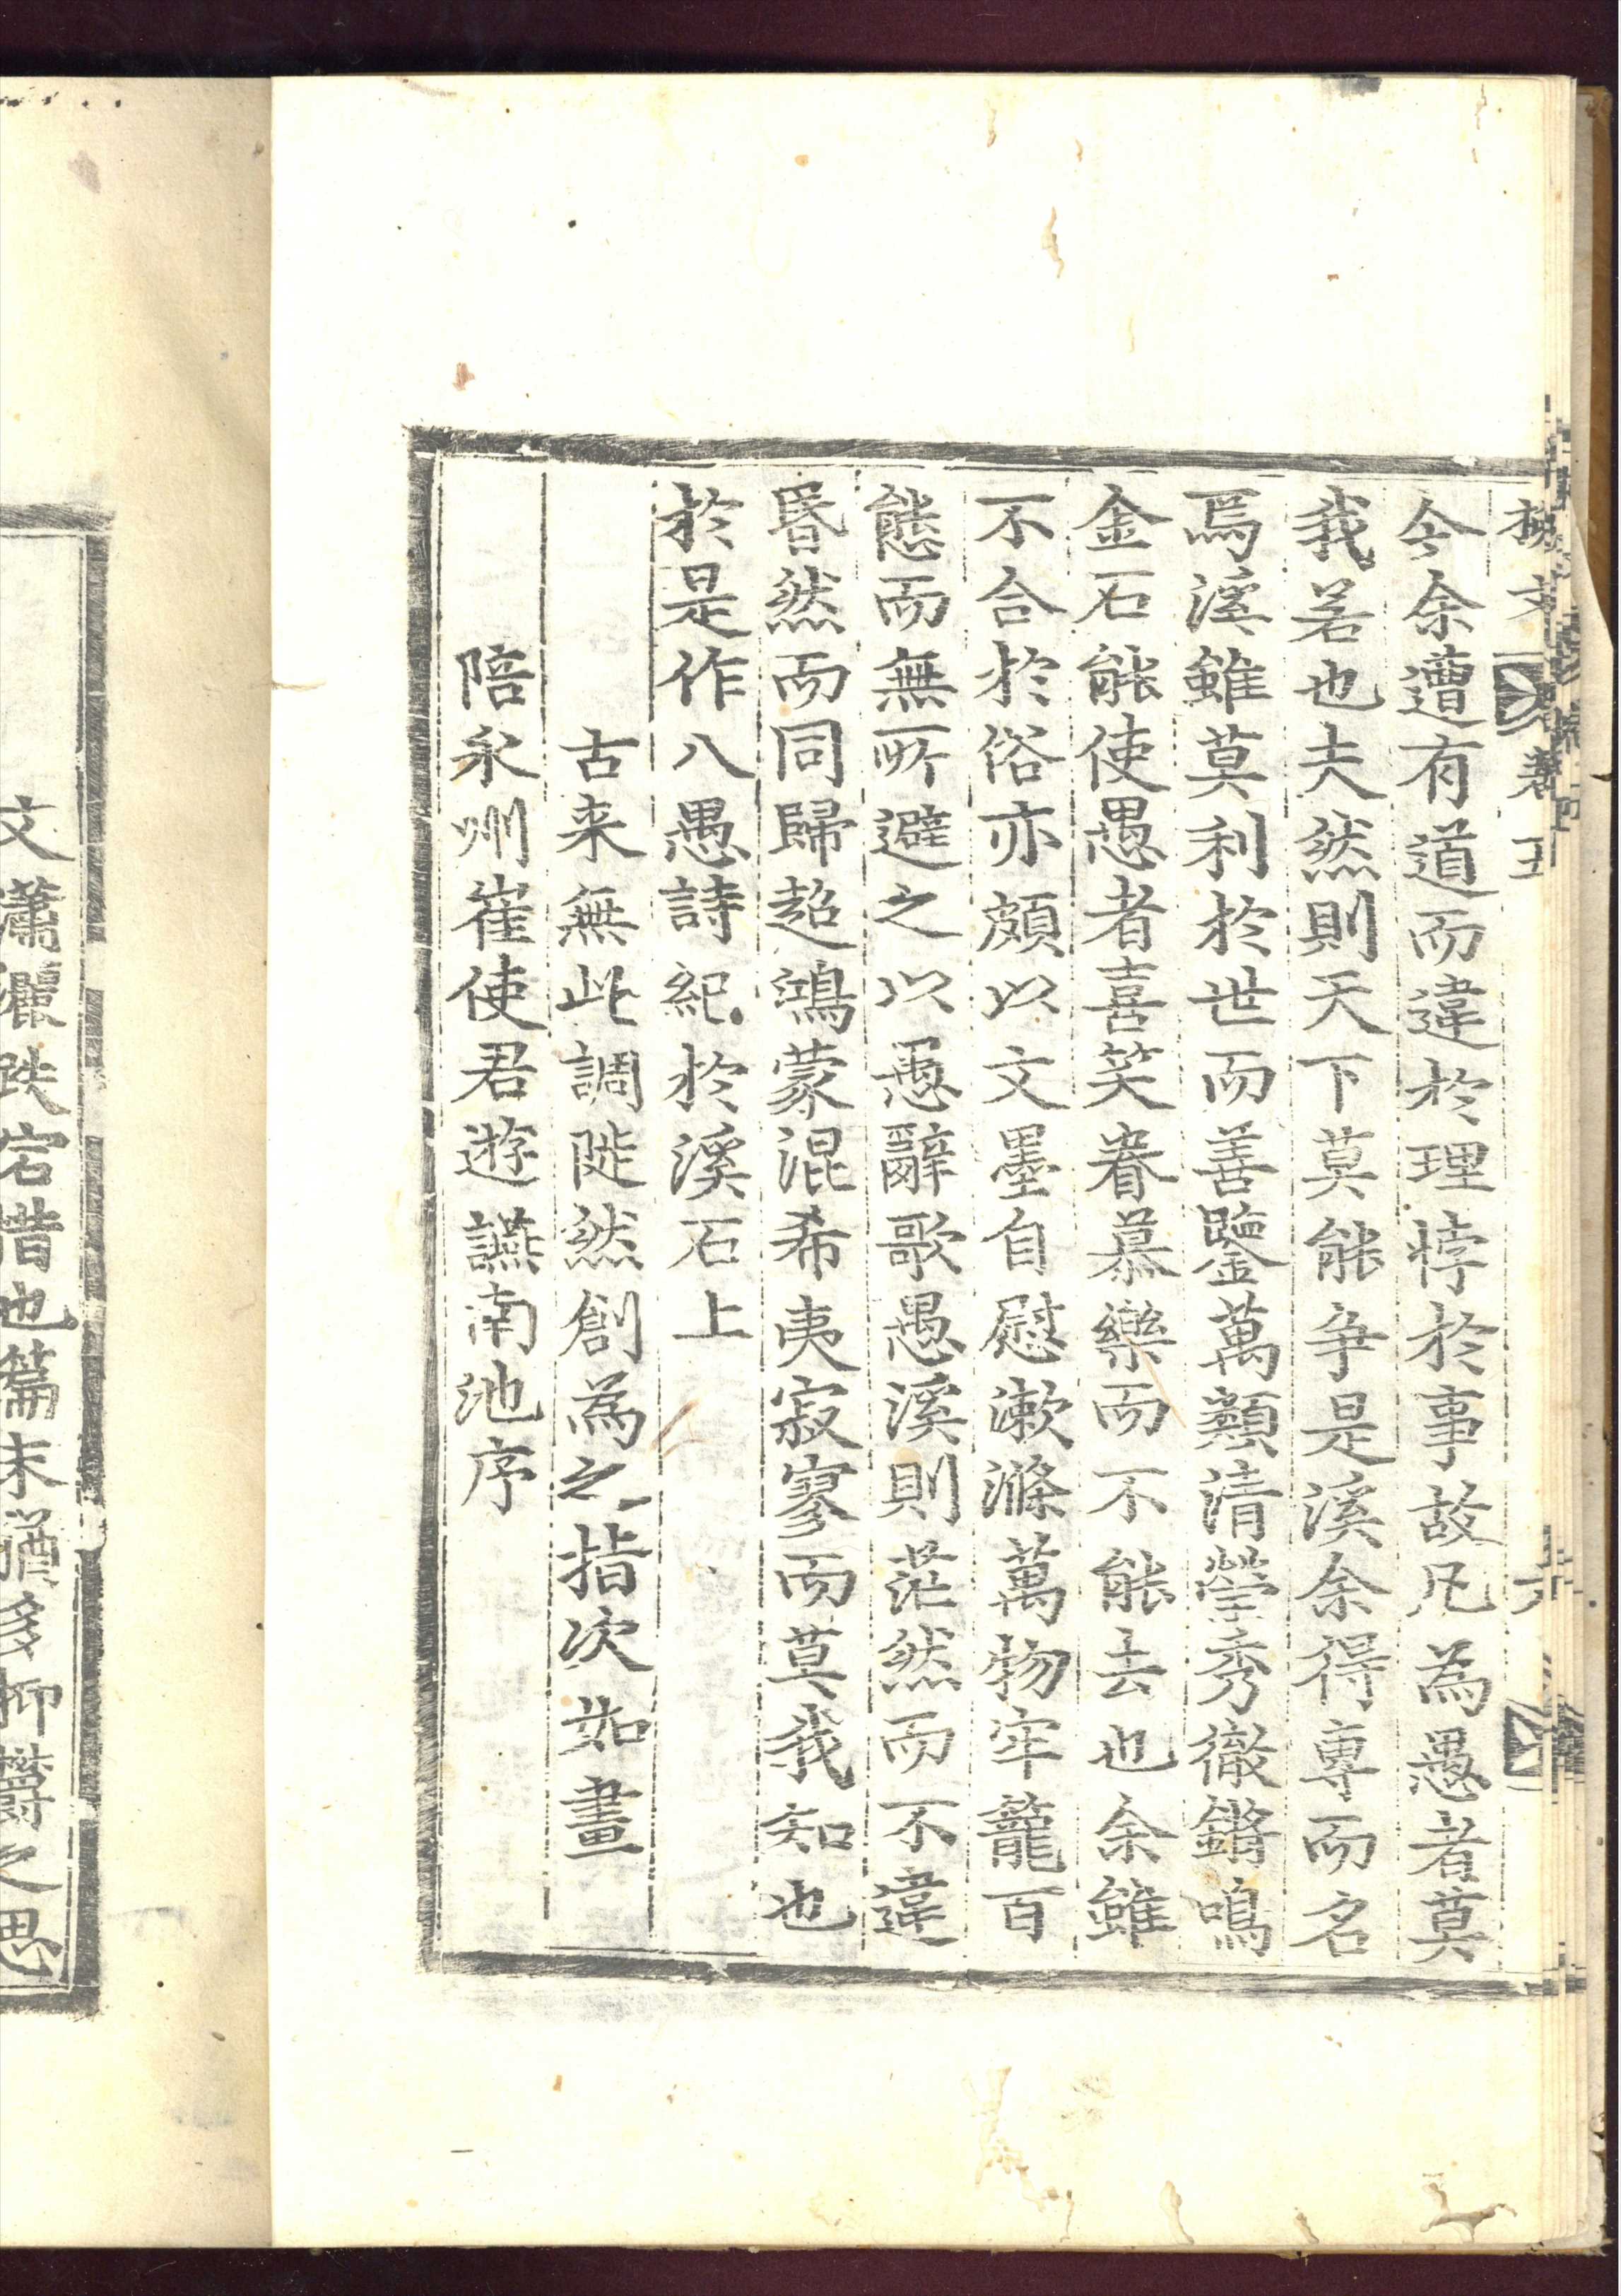 今余遭有道而違於理悖於事故凡為愚者莫
我若也夫然則天下莫能争是溪余得專而名
焉溪雖莫利於世而善鑒萬類清瑩秀徹鏘鳴
金石能使愚者喜笑眷慕樂而不能去也余雖
不合於俗亦頗以文墨自慰漱滌萬物牢籠百
態而無所避之以愚辭歌愚溪則茫然而不違
昏然而同歸超鴻蒙混希夷寂寥而莫我知也
於是作八愚詩紀於溪石上
古来無此調陡然創為之指次如畫
陪永州崔使君遊讌南池序
文瀟灑跌宕惜也篇末猶多抑鬱之思